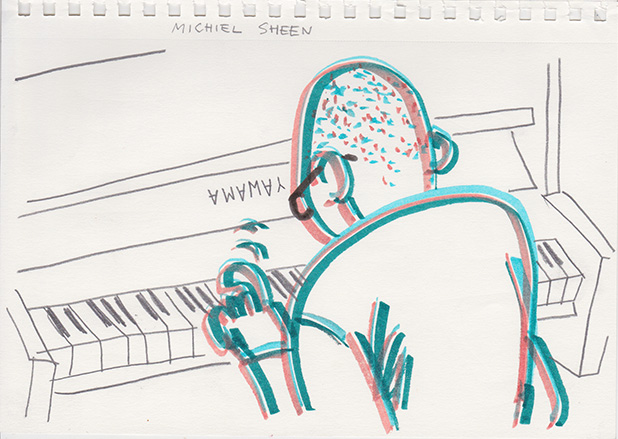 MICHIEL SHEEN
YAWAMA